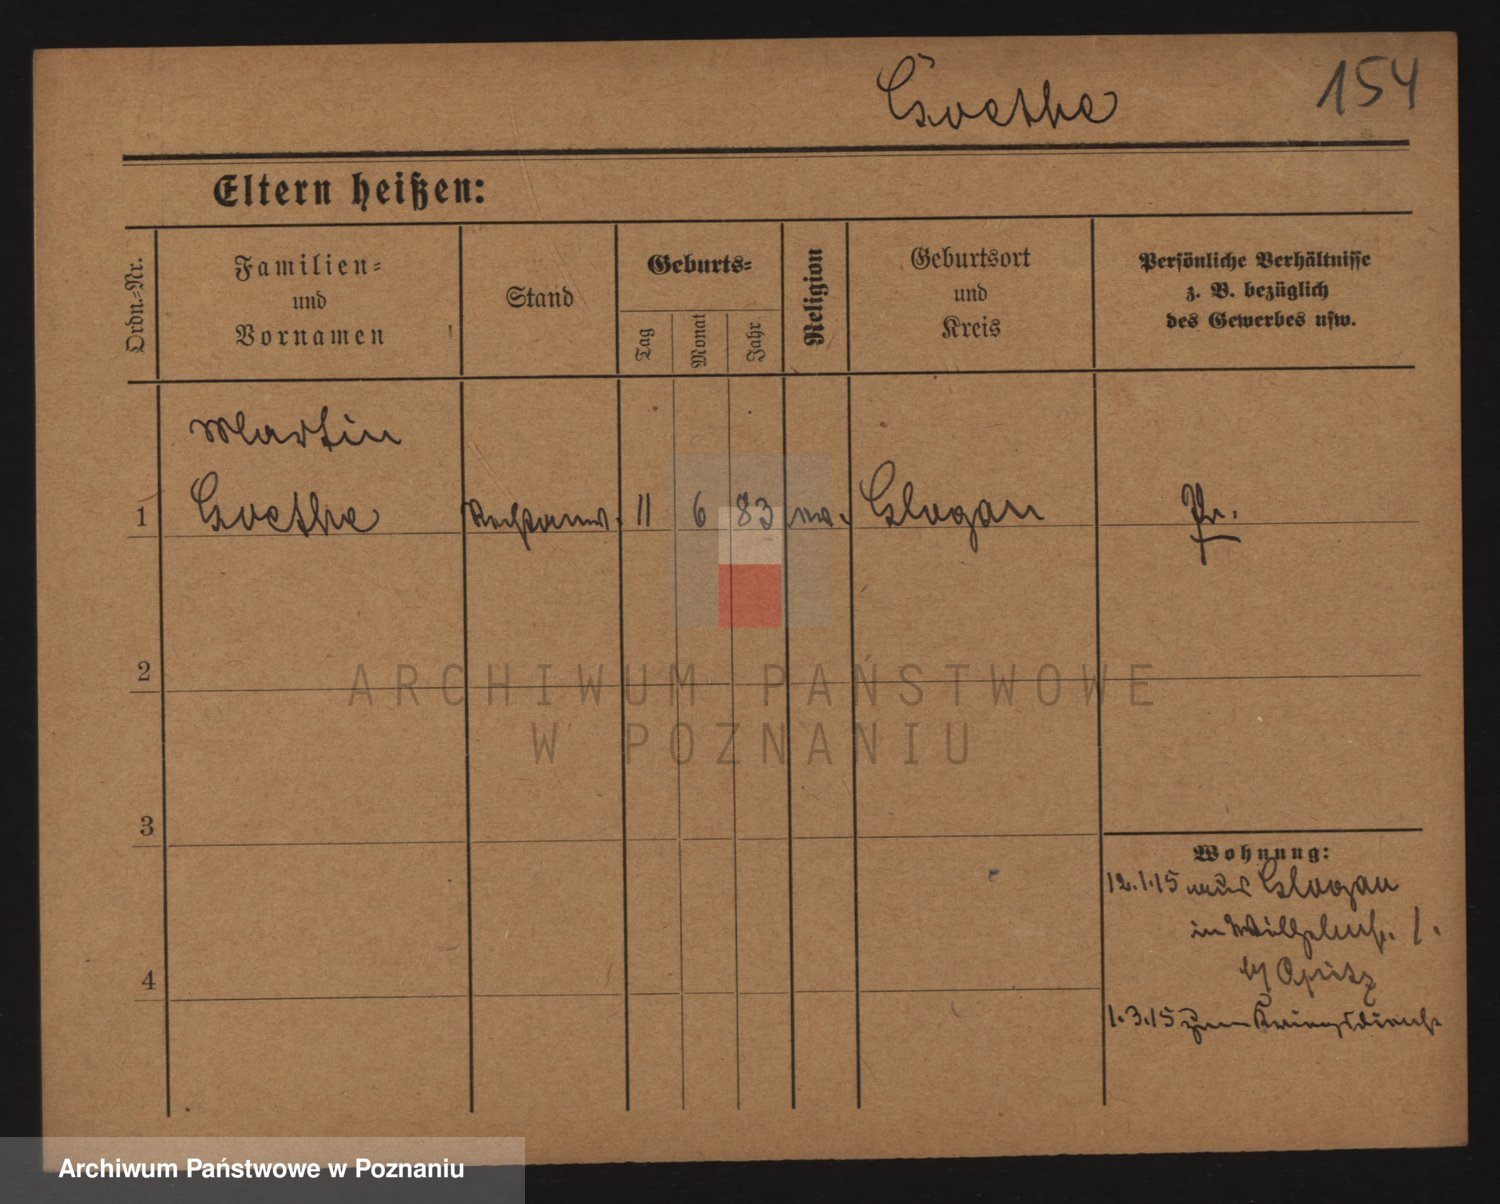 Goethe
154
Eltern heißen:
Ordn.-Nr.
Familien-
und
Vornamen
Stand
Geburts-
Tag
Monat
Jahr
Religion
Geburtsort
und
Kreis
Persönliche Verhältnisse
z. B. bezüglich
des Gewerbes usw.
Martin
1 Goethe Rechtsanw. 11 6 83 Glogau Pr.
2
3
4
Wohnung:
12.1.15 aus Glogau
in Wilhelmstr. 1.
b/ Opitz
1.3.15 zum Kriegsdienst
ARCHIWUM PAŃSTWOWE
W POZNANIU
Archiwum Państwowe w Poznaniu